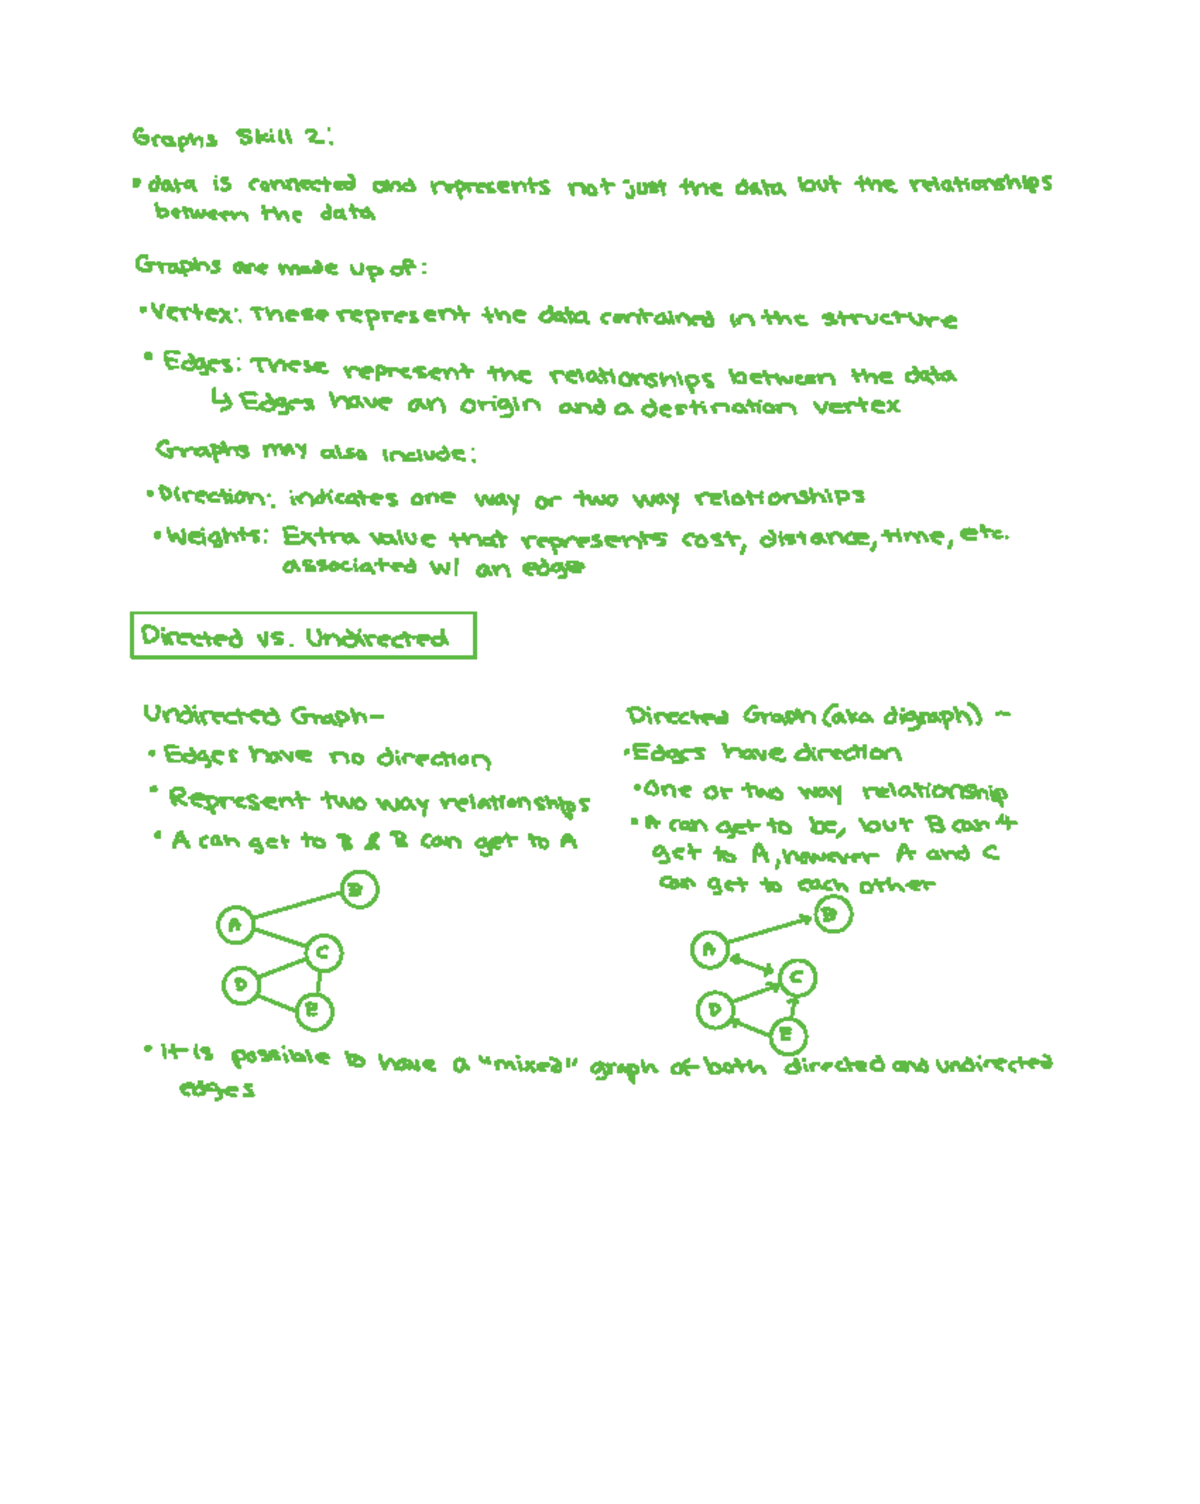 Graphs Skill 2:
• data is connected and represents not just the data but the relationships
between the data
Graphs are made up of:
• Vertex: These represent the data contained in the structure
• Edges: These represent the relationships between the data
↳ Edges have an origin and a destination vertex
Graphs may also include:
• Direction: indicates one way or two way relationships
• Weights: Extra value that represents cost, distance, time, etc.
associated w/ an edge
Directed vs. Undirected
Undirected Graph-
• Edges have no direction
• Represent two way relationships
• A can get to B & B can get to A
B
A
C
D
E
Directed Graph (aka digraph) -
• Edges have direction
• One or two way relationship
• A can get to be, but B can't
get to A, however A and C
can get to each other
B
A
C
D
E
• It is possible to have a "mixed" graph of both directed and undirected
edges